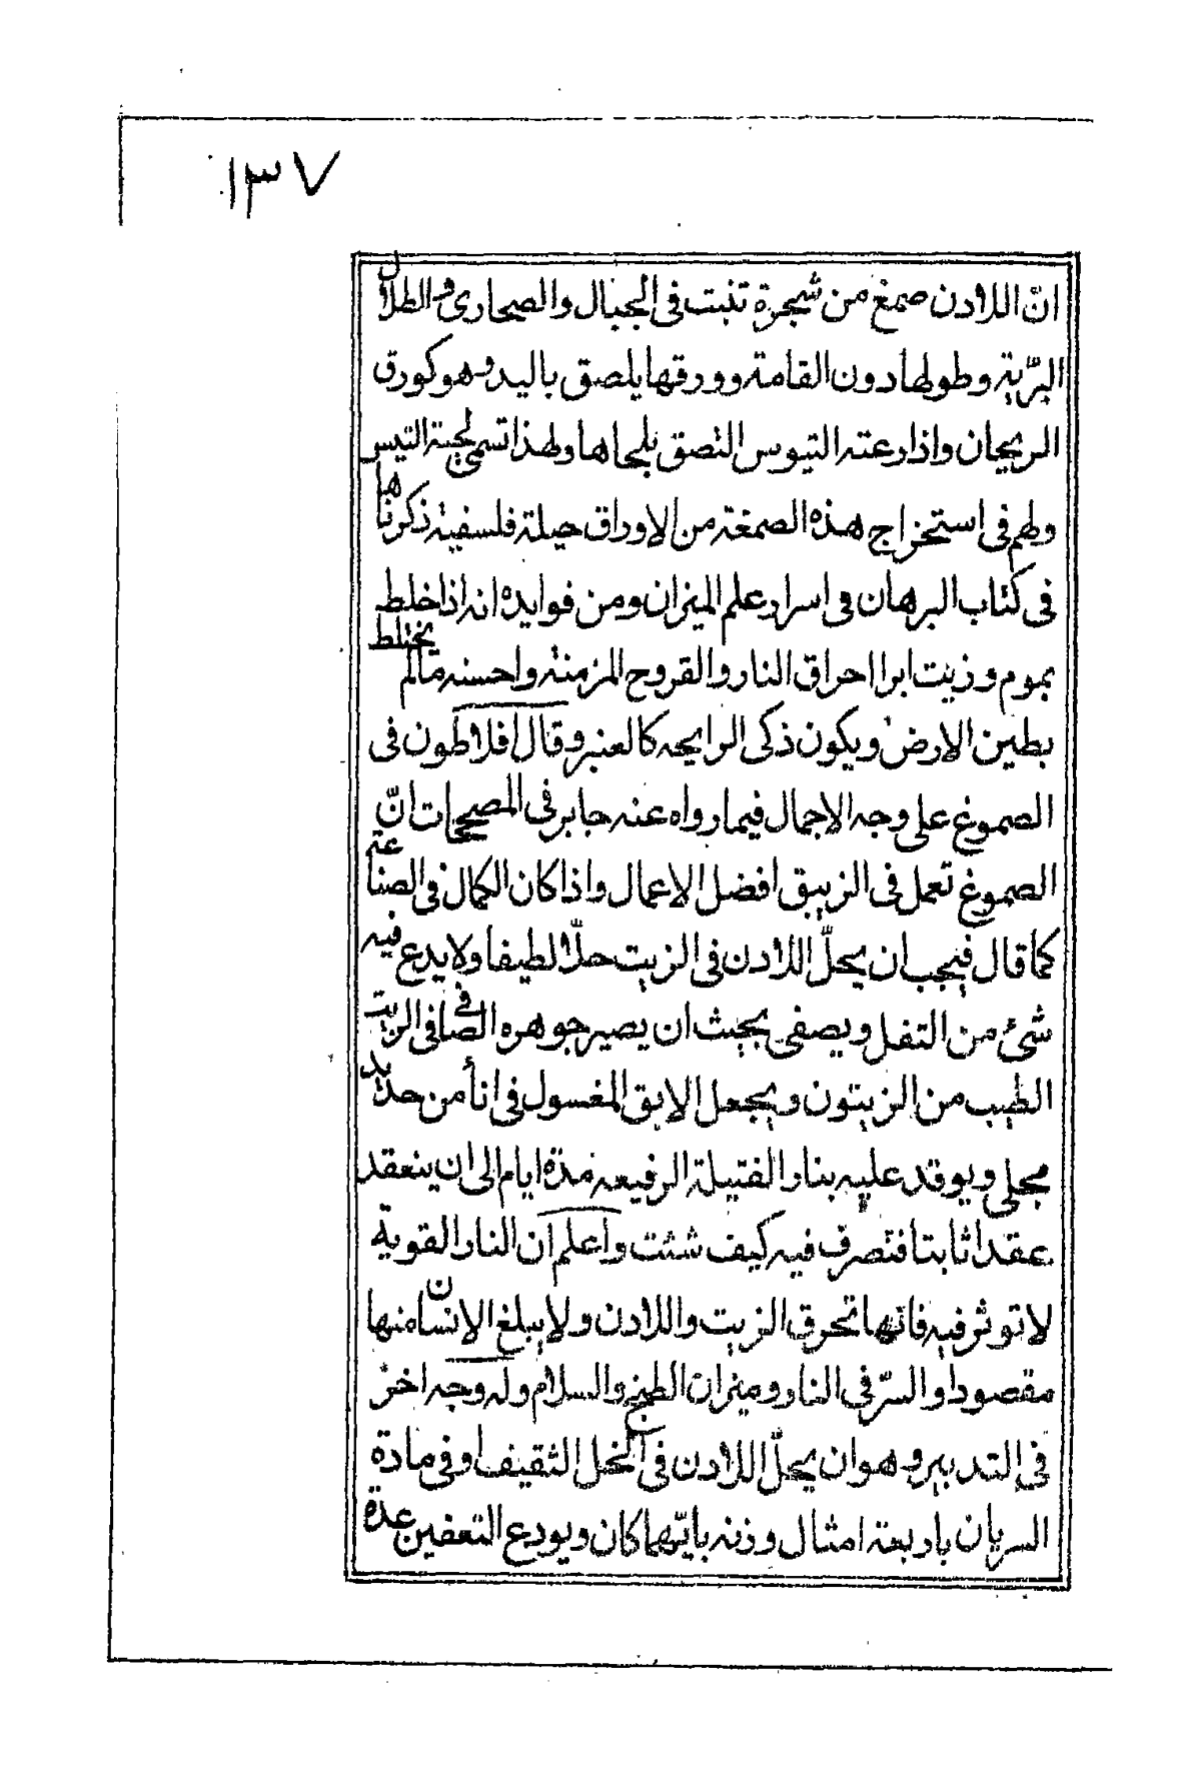 ١٣٧
انّ اللادن صمغ من شجرة تنبت فى الجبال والصحارى والطلال
البرّية وطولها دون القامة وورقها يلصق باليد وهو كورق
الريحان واذا رعته التيوس التصق بلحاها ولهذا تسمى لحية التيس
ولهم فى استخراج هذه الصمغة من الاوراق حيلة فلسفية ذكرناها
فى كتاب البرهان فى اسرار علم الميزان ومن فوايده انه اذا خلط
بموم وزيت ابرا احراق النار والقروح المزمنة واحسنه مالم يختلط
بطين الارض ويكون ذكى الرايحه كالعنبر وقال افلاطون فى
الصموغ على وجه الاجمال فيما رواه عنه جابر فى المصححات انّ
الصموغ تعمل فى الزيبق افضل الاعمال واذا كان الكمال فى الصناعة
كما قال فيجب ان يحلّ اللادن فى الزيت حلّا لطيفا ولا يدع فيه
شئ من التفل ويصفى بحيث ان يصير جوهره الصافى فى الزيت
الطيب من الزيتون ويجعل الابق المغسول فى انأ من حديد
مجلى ويوقد عليه بنار الفتيلة الرفيعه مدّة ايام الى ان ينعقد
عقدا ثابتا فتصرف فيه كيف شئت واعلم ان النار القوية
لا توثر فيه فانها تحرق الزيت واللادن ولا يبلغ الانسان منها
مقصودا والسرّ فى النار وميزان الطبخ والسلام وله وجه اخر
فى التدبير وهو ان يحلّ اللادن فى الخل الثقيف او فى مادة
السريان باربعة امثال وزنه بايّهما كان ويودع التعفين عدة